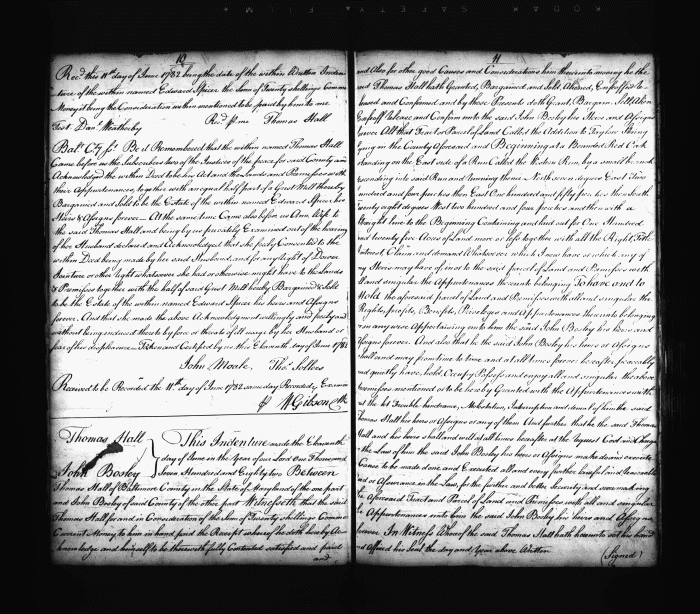 KODAK SAFETY FILM
10
Recd this 11th day of June 1782 being the date of the within Written Inden
ture of the within named Edward Spicer the Sum of Twenty shillings Common
Money it being the Consideration within mentioned to be paid by him to me
Test Danl Weatherby Recd p me Thomas Hall
Balt. Cty Sct. Be it Remembered that the within named Thomas Hall
Came before us the Subscribers two of the Justices of the peace for said County and
Acknowledged the within Deed to be his Act and the Lands and Premisses with
their Appurtenances, together with an equal half part of a Grist Mill thereby
Bargained and Sold to be the Estate of the within named Edward Spicer his
Heirs & Assigns forever At the same time Came also before us Ann Wife to
the said Thomas Hall and being by us privately Examined out of the hearing
of her Husband declared and Acknowledged that she freely Consented to the
within Deed being made by her said Husband, and for any Right of Dower
Jointure or other right whatsoever she had or otherwise might have to the Lands
& Premisses together with the half of said Grist Mill hereby Bargained & Sold
to be the Estate of the within named Edward Spicer his heirs and Assigns
forever. And that she made the above Acknowledgment willingly and freely and
without being induced thereto by fear or threats of ill usage by her Husband or
fear of his displeasure. Taken and Certified by us this Eleventh day of June 1782
John Moale, Thos Sollers
Received to be Recorded the 11th day of June 1782 same day Recorded & Examd
p Wm Gibson Clk
Thomas Hall
John Bosley
This Indenture made the Eleventh
day of June in the Year of our Lord One Thousand
Seven Hundred and Eighty two Between
Thomas Hall of Baltimore County in the State of Maryland of the one part
and John Bosley of said County of the other part Witnesseth that the said
Thomas Hall for and in Consideration of the Sum of Twenty shillings Common
Current Money, to him in hand paid the Receipt whereof he doth hereby Ac
knowledge and himself to be therewith fully Contented satisfied and paid
and
11
and Also for other good Causes and Considerations him thereunto moving he the
said Thomas Hall hath Granted, Bargained and Sold, Aliened, Enfeoffed Re
leased and Confirmed and by these Presents doth Grant, Bargain, Sell Alien
Enfeoff Release and Confirm unto the said John Bosley his Heirs and Assigns
forever All that Tract or Parcel of Land Called the Addition to Taylors
lying in the County Aforesaid and Beginning at a Bounded Red Oak
standing on the East side of a Run Called the Western Run, by a small branch
descending into said Run and running thence North seven degrees East Two
hundred and four perches then East One hundred and fifty five perches then South
Twenty eight degrees West two hundred and four perches and then with a
straight line to the Beginning Containing and laid out for One Hundred
and twenty five Acres of Land more or less together with all the Right Title
Interest Claim and demand Whatsoever which I now have or which any of
my Heirs may have of in or to the said parcel of Land and Premisses with
all and singular the Appurtenances thereunto belonging To have and to
Hold the aforesaid parcel of Land and Premisses with all and singular the
Rights, profits, Benefits, Privileges and Appurtenances thereunto belonging
or in any wise Appertaining unto him the said John Bosley his Heirs and
Assigns forever. And also that he the said John Bosley his heirs or Assigns
shall and may from time to time and at all times forever hereafter peaceably
and quietly have, hold, Occupy Possess and enjoy all and singular the above
Premisses mentioned or to be hereby Granted with the Appurtenances without
the let Trouble hindrance, Molestation, Interruption and denial of him the said
Thomas Hall his heirs or Assigns or any of them And further that he the said Thomas
Hall and his heirs shall and will at all times hereafter at the Request Cost and Charge
in the Law of him the said John Bosley his Heirs or Assigns make do and execute
or Cause to be made done, and Executed all and every further lawful and reasonable
Act or Assurance in the Law, for the further and better Security and sure making
the Aforesaid Tract and Parcel of Land and Premisses with all and singular
the Appurtenances unto him the said John Bosley his heirs and Assigns
forever In Witness Whereof the said Thomas Hall hath hereunto set his hand
and affixed his Seal the day and Year above Written
(Signed)